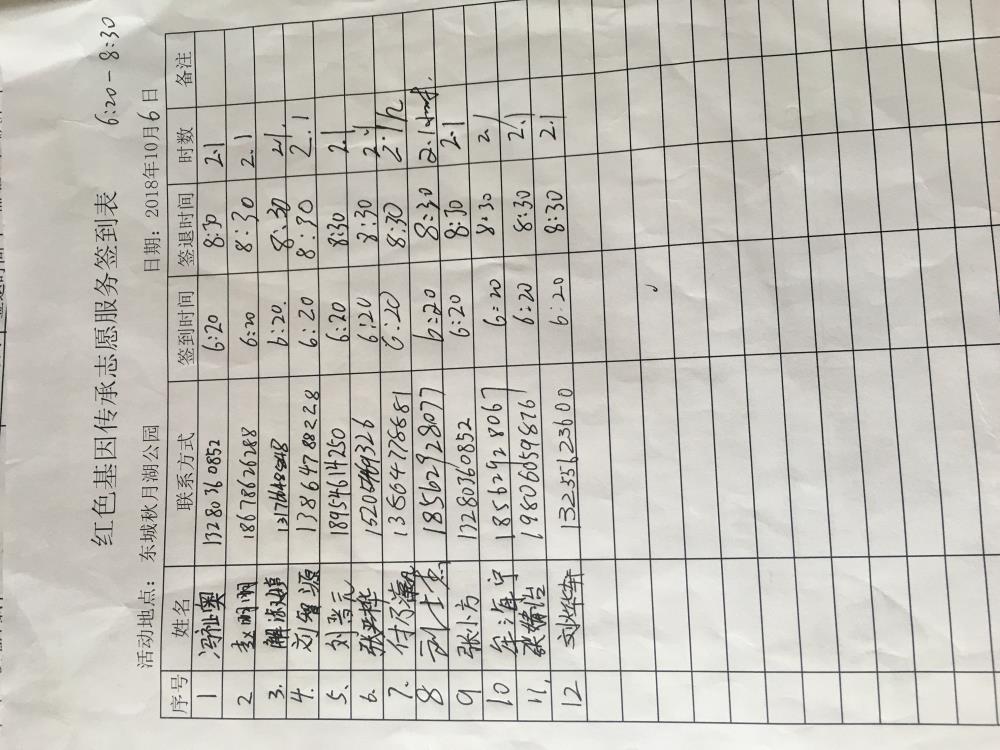 6:20-8:30
红色基因传承志愿服务签到表
活动地点：东城秋月湖公园 日期：2018年10月6日
序号 姓名 联系方式 签到时间 签退时间 时数 备注
1 13280360852 6:20 8:30 2.1
2 赵明明 18678626288 6:20 8:30 2.1
3. 6:20. 8:30 2.1.
4. 刘智源 13864788228 6:20 8:30 2.1
5. 刘晋元 18954614250 6:20 8:30 2.1
6. 6:20 8:30 2.1
7. 13564778681 6:20 8:30 2.1h
8 刘士杰 18562928077 6:20 8:30 2.1
9 张小方 13280360852 6:20 8:30 2.1
10 牟海宁 18562928067 6:20 8:30 2.1
11. 张婧怡 19806059876 6:20 8:30 2.1
12 13255623600 6:20 8:30 2.1